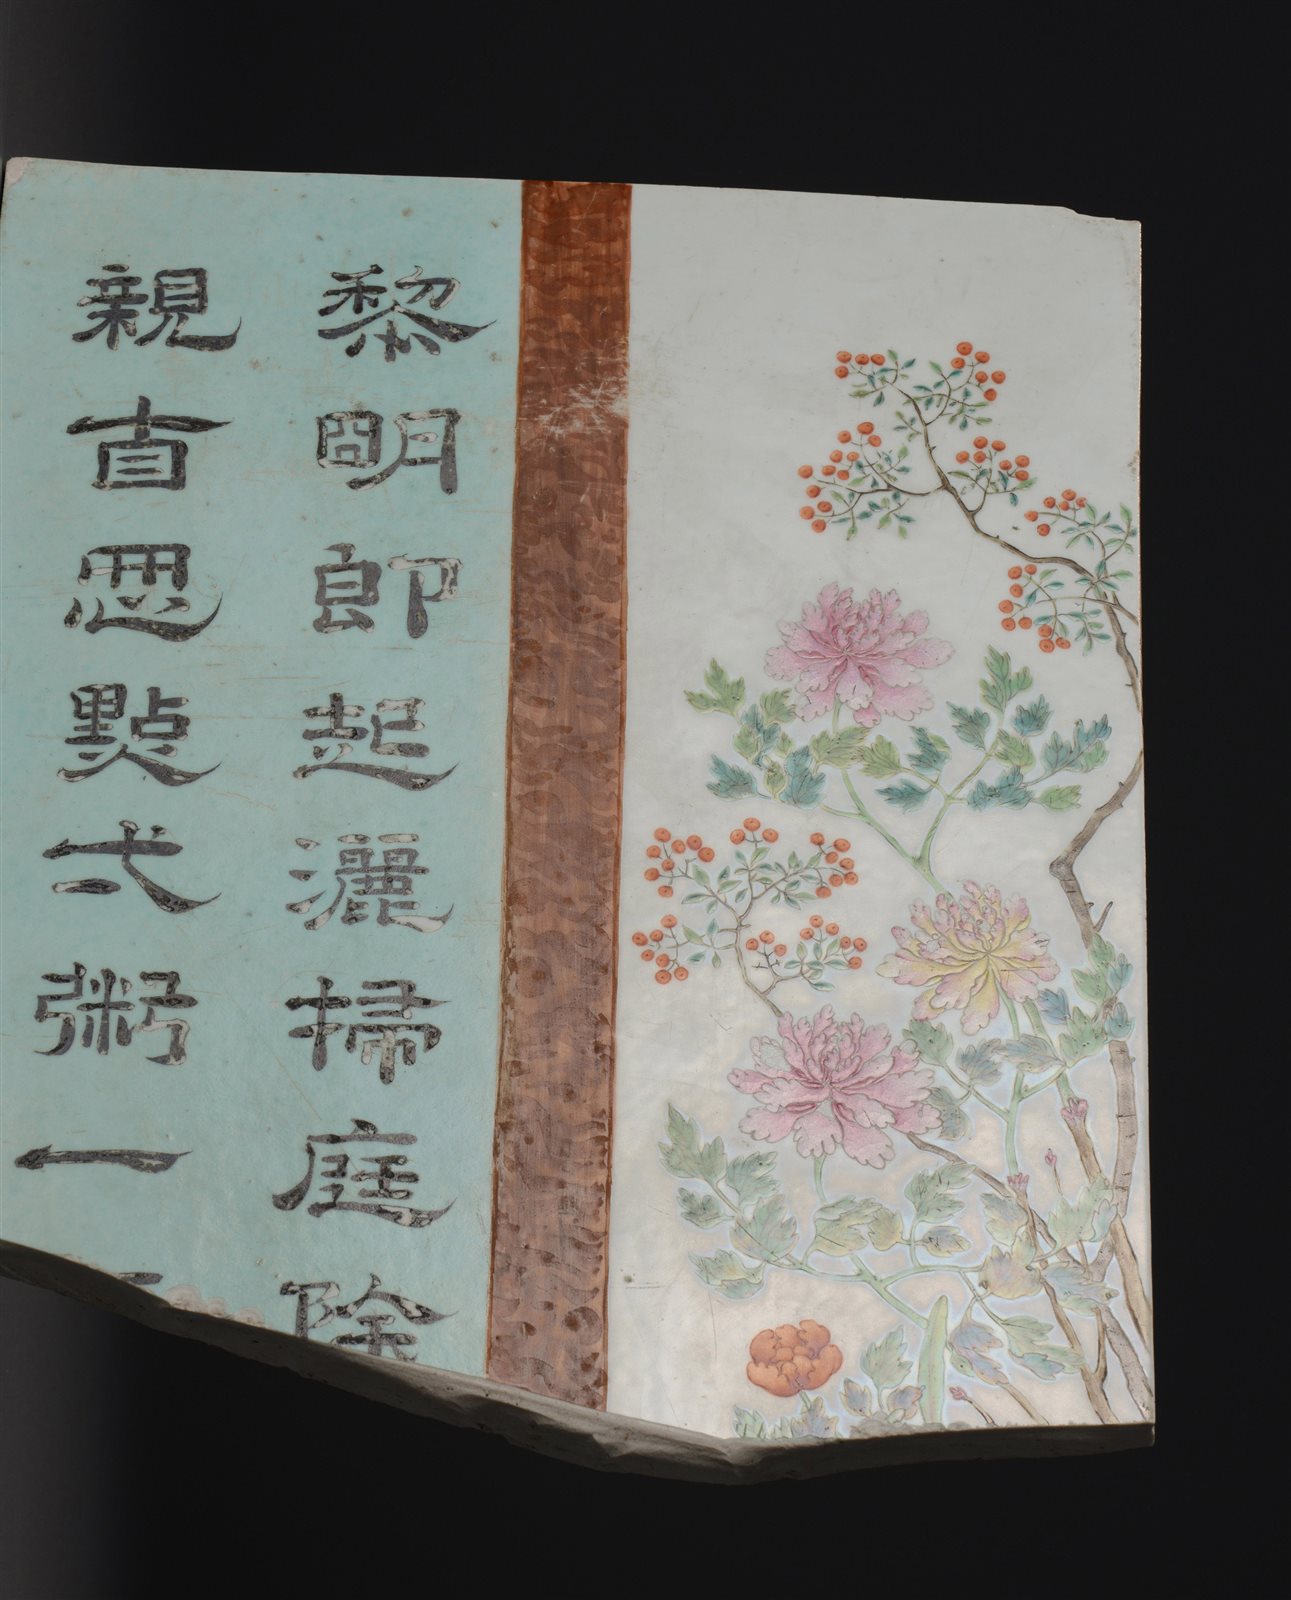 黎明即起灑掃庭除
親自點弌粥一